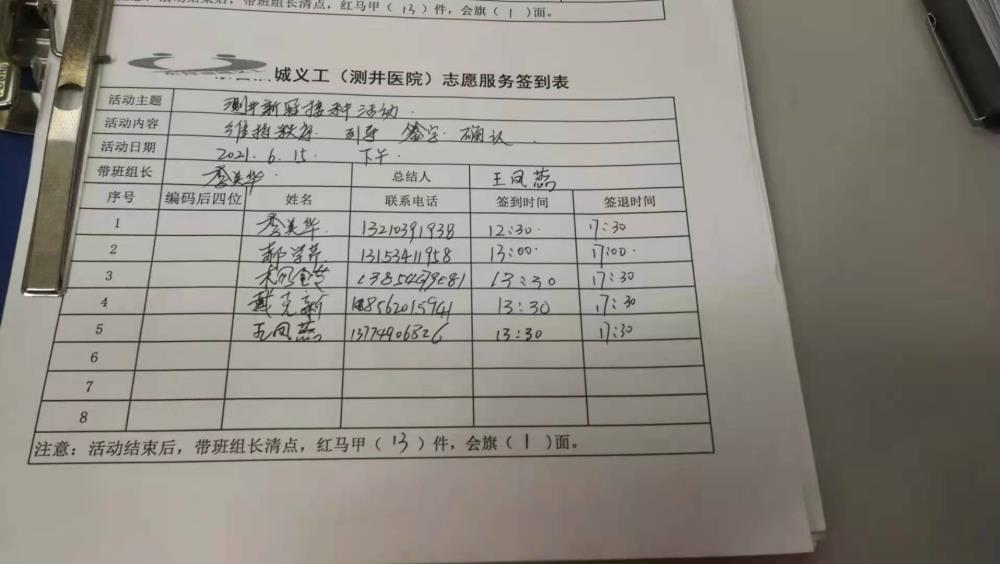 活动结束后，带班组长清点，红马甲（13）件，会旗（1）面。
城义工（测井医院）志愿服务签到表
活动主题 测井新冠接种活动.
活动内容 维持秩序. 引导 签字 确认.
活动日期 2021.6.15. 下午.
带班组长 李美华. 总结人 王凤蕊
序号 编码后四位 姓名 联系电话 签到时间 签退时间
1 李美华. 13210391938 12:30 17:30
2 郝学芹 13153411958 13:00 17:00
3 13:30 17:30
4 戴克新 18562015941 13:30 17:30
5 王凤蕊 13774906826 13:30 17:30
6
7
8
注意：活动结束后，带班组长清点，红马甲（13）件，会旗（1）面。